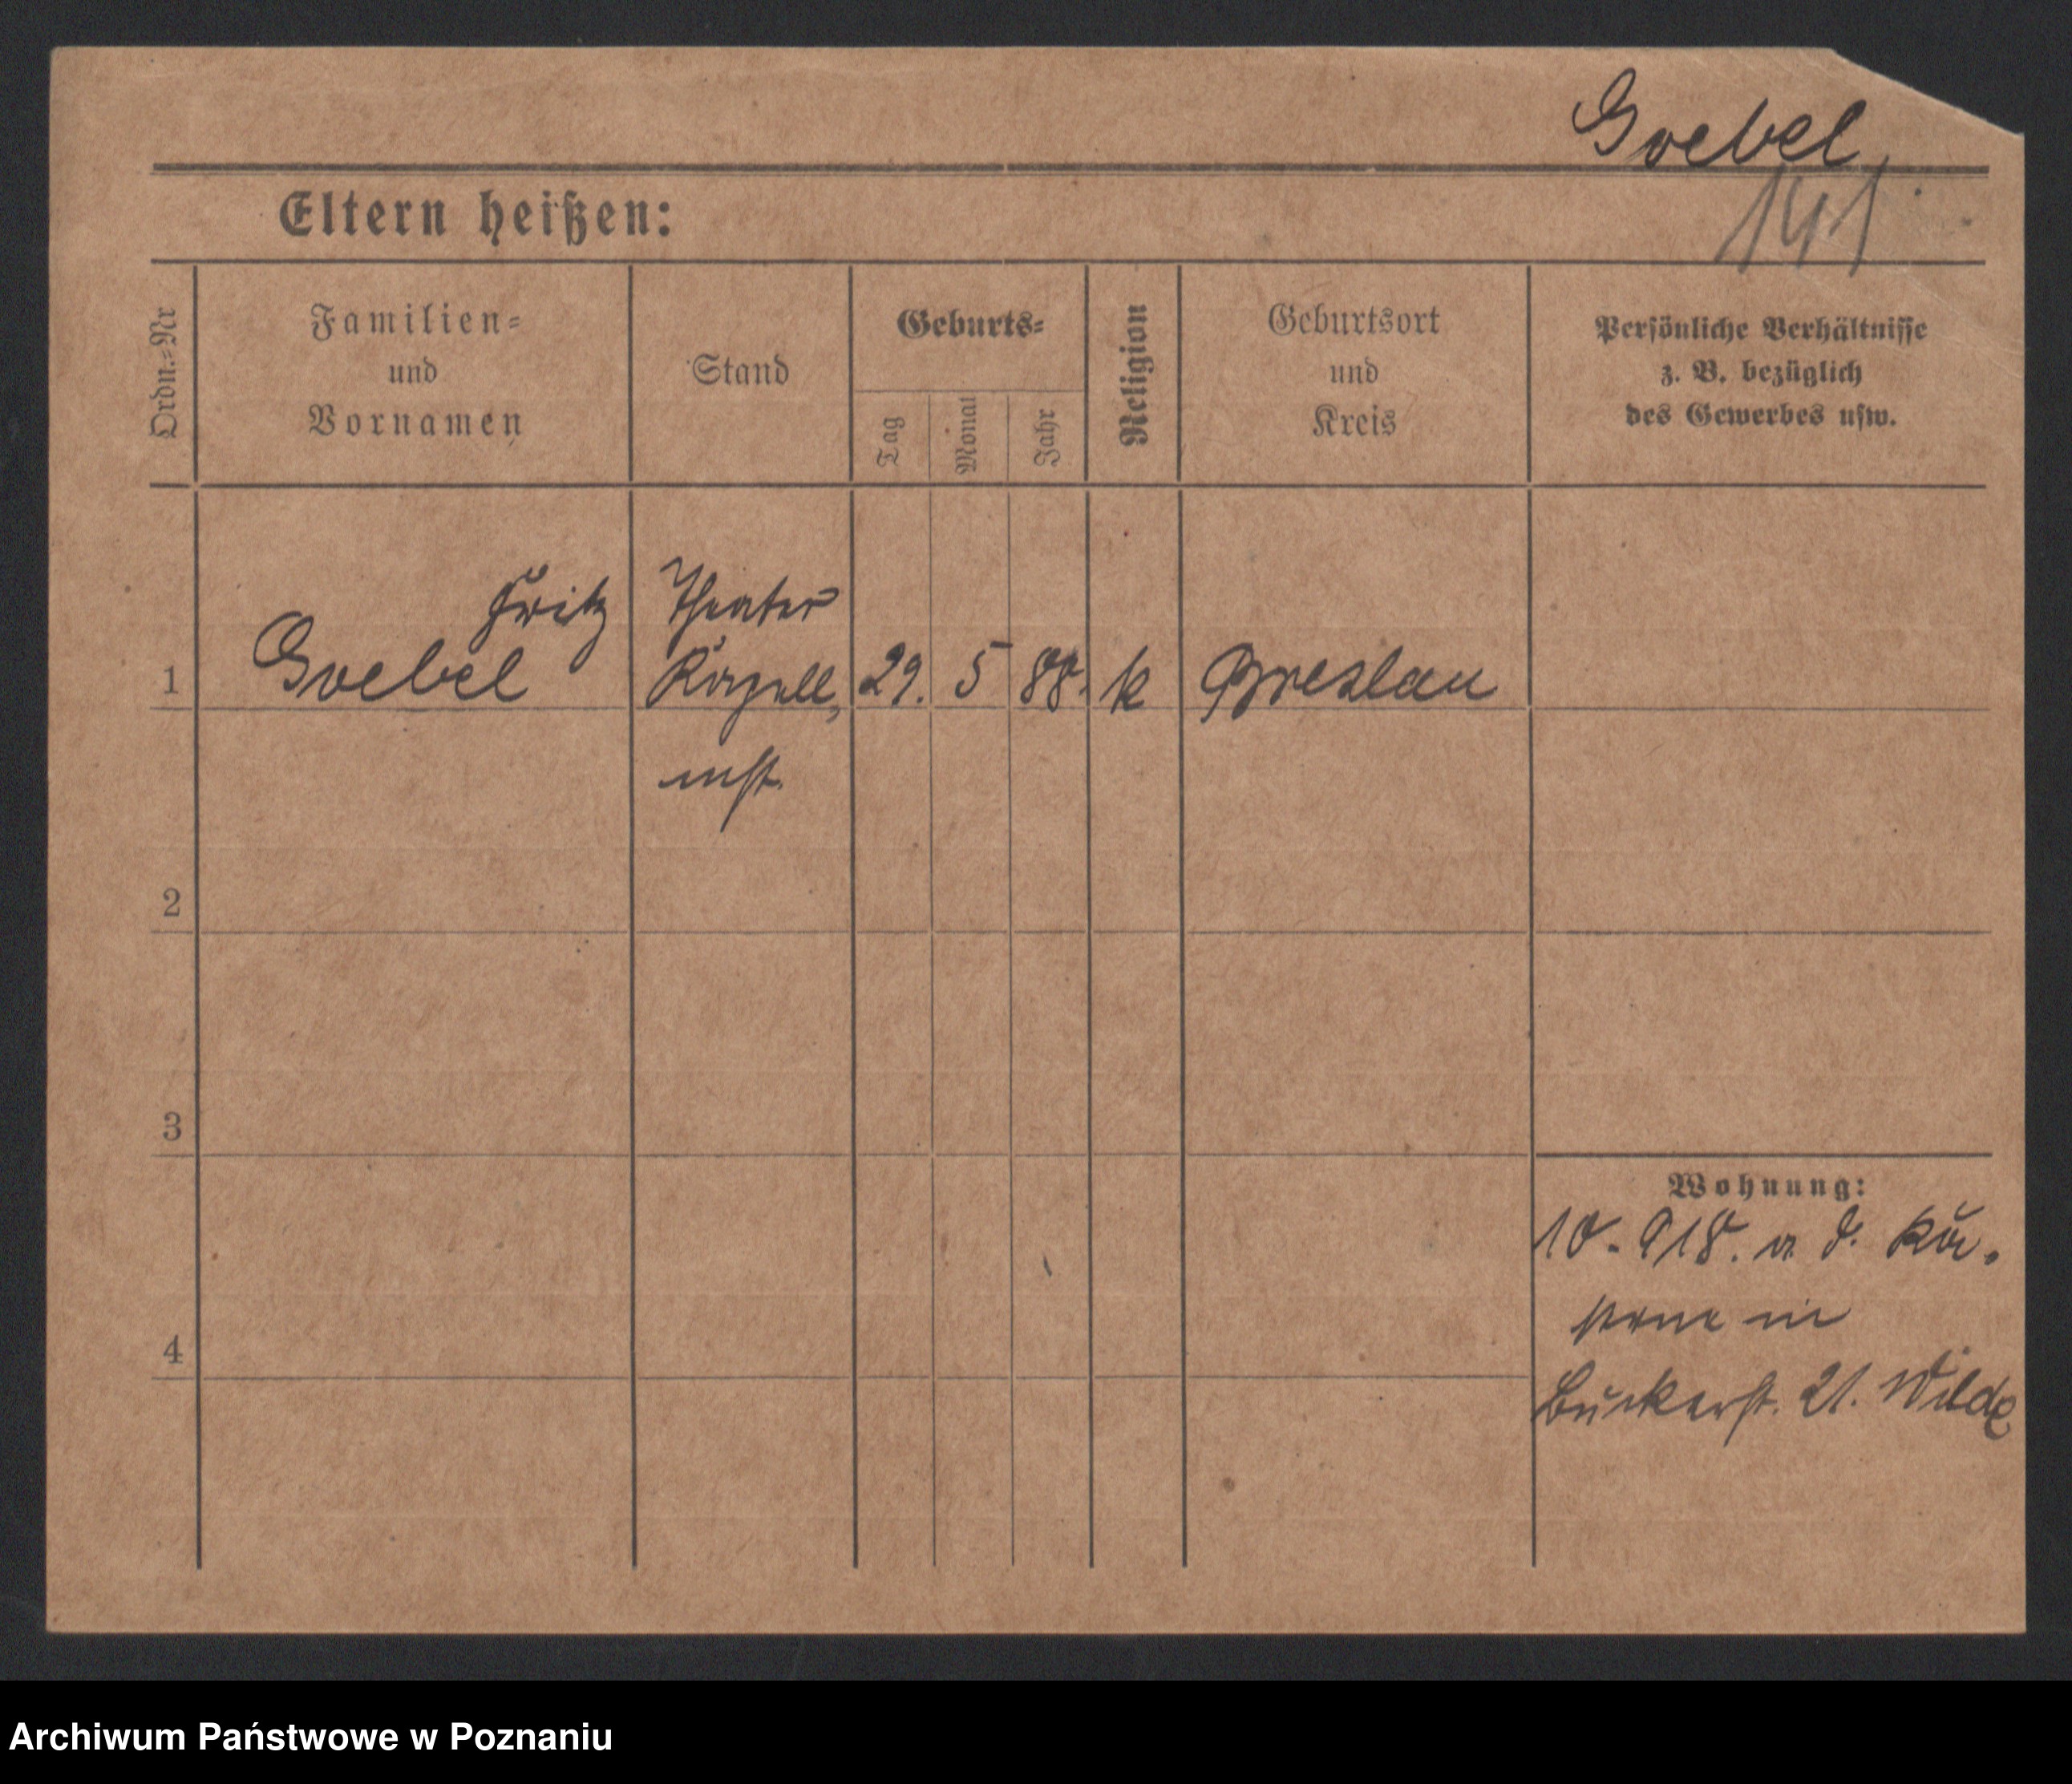 Goebel,
141
Eltern heißen:
Ordn.=Nr
Familien=
und
Vornamen
Stand
Geburts=
Tag
Monat
Jahr
Religion
Geburtsort
und
Kreis
Persönliche Verhältnisse
z. B. bezüglich
des Gewerbes usw.
Fritz
Goebel
Theater
Kapell,
mst.
1
29. 5 88. k Breslau
2
3
4
Wohnung:
10.918. a d. Ka,
serne in
Buckerst. 21. Wilde
Archiwum Państwowe w Poznaniu